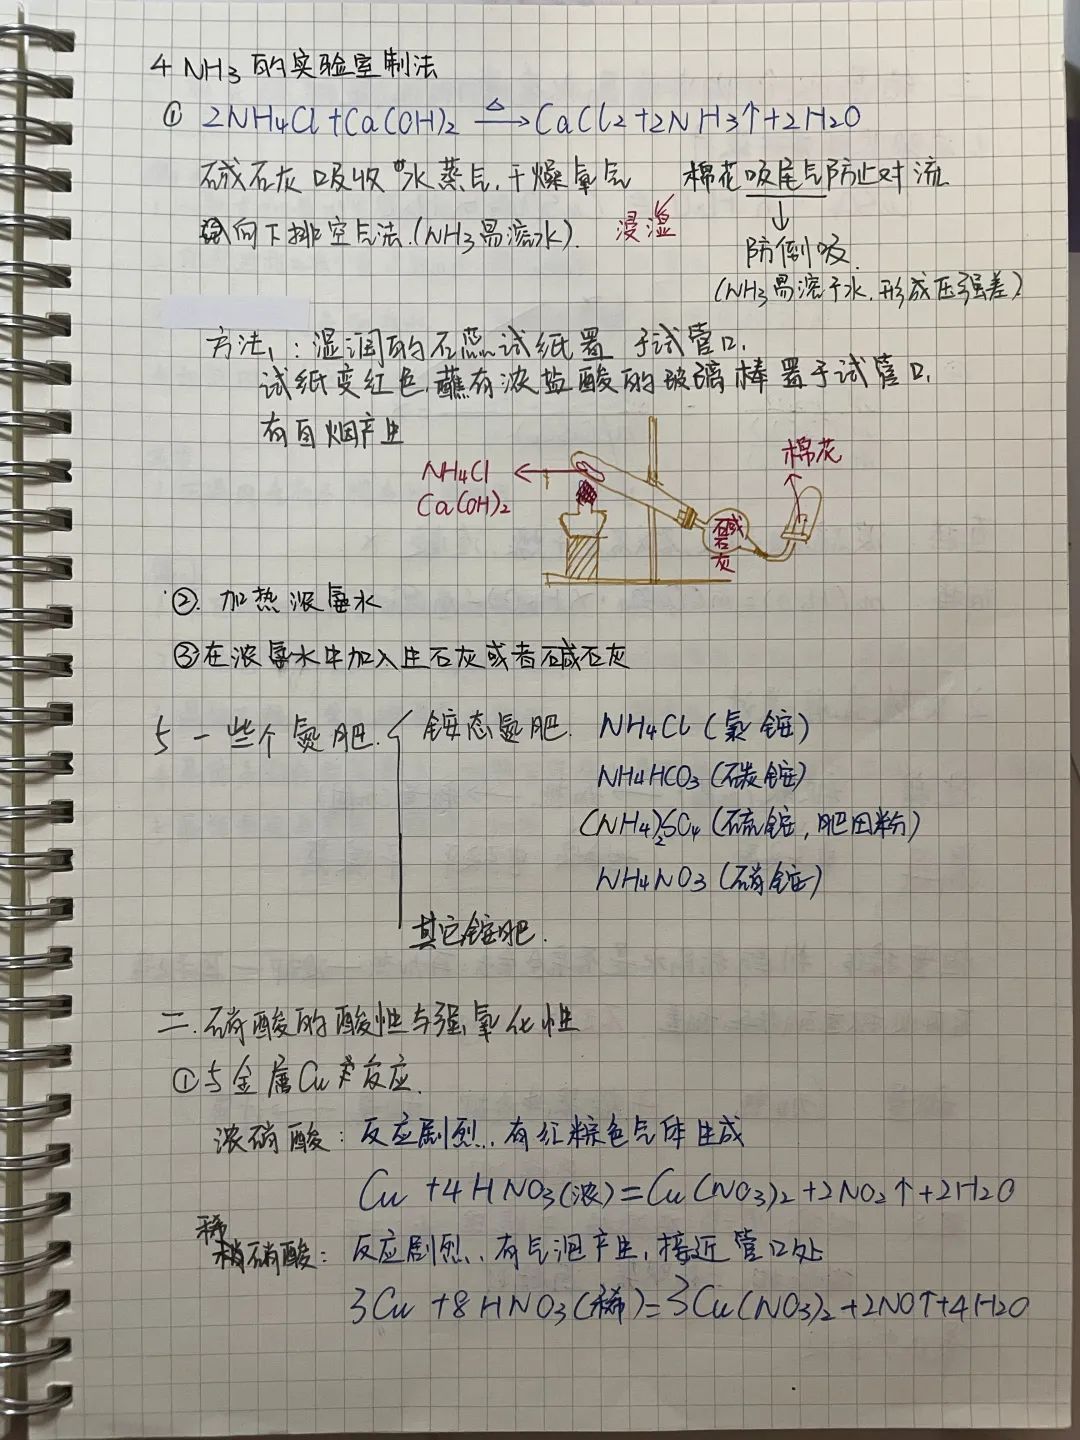 4 NH3的实验室制法
① 2NH4Cl+Ca(OH)2 —△→ CaCl2+2NH3↑+2H2O
碱石灰吸收水蒸气,干燥氨气 棉花吸尾气防止对流
向下排空气法.(NH3易溶水). 浸湿 ↓
防倒吸.
(NH3易溶于水,形成压强差)
方法1:湿润的石蕊试纸置于试管口,
试纸变红色,蘸有浓盐酸的玻璃棒置于试管口,
有白烟产生
棉花
NH4Cl
Ca(OH)2
碱石灰
②. 加热浓氨水
③在浓氨水中加入生石灰或者碱石灰
5 一些个氮肥. 铵态氮肥. NH4Cl(氯铵)
NH4HCO3(碳铵)
(NH4)2SO4(硫铵,肥田粉)
NH4NO3(硝铵)
其它铵肥.
二.硝酸的酸性与强氧化性
①与金属Cu反应.
浓硝酸:反应剧烈,有红棕色气体生成
Cu+4HNO3(浓)=Cu(NO3)2+2NO2↑+2H2O
稀硝酸:反应剧烈,有气泡产生,接近管口处
3Cu+8HNO3(稀)=3Cu(NO3)2+2NO↑+4H2O